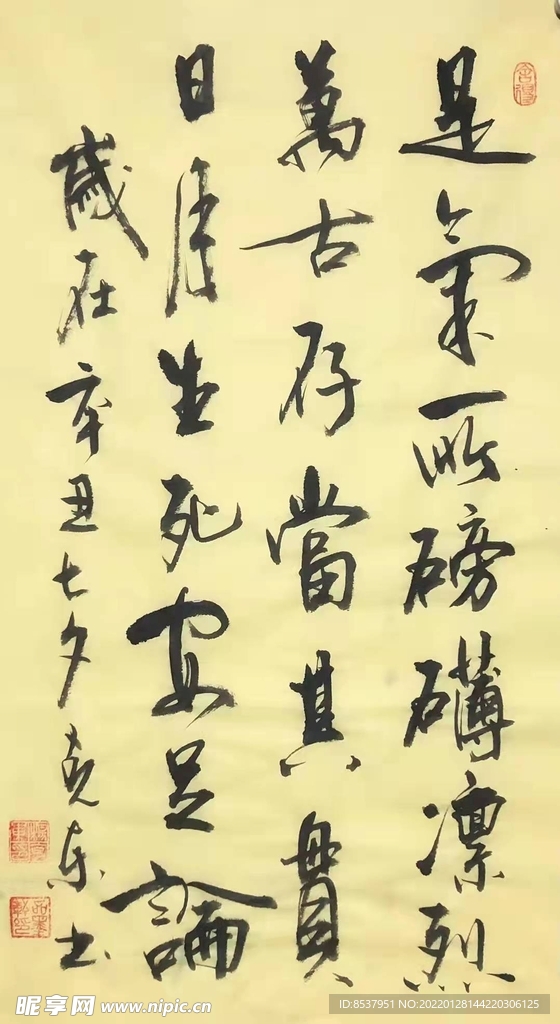 舍得
是氣所磅礴凛烈
萬古存當其貫
日月生死安足論
歲在辛丑七夕东书
昵享网 www.nipic.cn
ID:8537951 NO:20220128144220306125